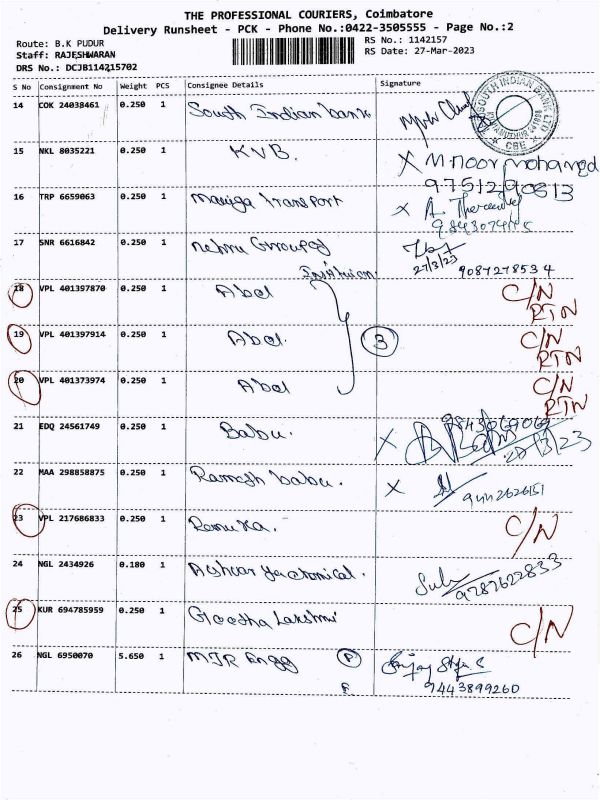 THE PROFESSIONAL COURIERS, Coimbatore
Delivery Runsheet - PCK - Phone No.:0422-3505555 - Page No.:2
Route: B.K PUDUR
Staff: RAJESHWARAN
DRS No.: DCJB114215702
RS No.: 1142157
RS Date: 27-Mar-2023
S No Consignment No Weight PCS Consignee Details Signature
14 COK 24038461 0.250 1 South Indian bank
SOUTH INDIAN BANK LTD
CBE
15 NKL 8035221 0.250 1 KVB. X M Noor mohamed
9751290813
16 TRP 6659063 0.250 1 Transport X A
17 SNR 6616842 0.250 1 Nehru Group of
27/3/23 9087278534
18 VPL 401397870 0.250 1 Abel C/N
RTN
19 VPL 401397914 0.250 1 Abel. 3 C/N
RTN
20 VPL 401373974 0.250 1 Abel C/N
RTN
21 EDQ 24561749 0.250 1 Babu. X
22 MAA 298858875 0.250 1 Ramesh babu. X 9442626151
23 VPL 217686833 0.250 1 Renuka. C/N
24 NGL 2434926 0.180 1
9787622833
25 KUR 694785959 0.250 1 Geetha Lakshmi C/N
26 NGL 6950070 5.650 1 MJR Engg P
9443899260